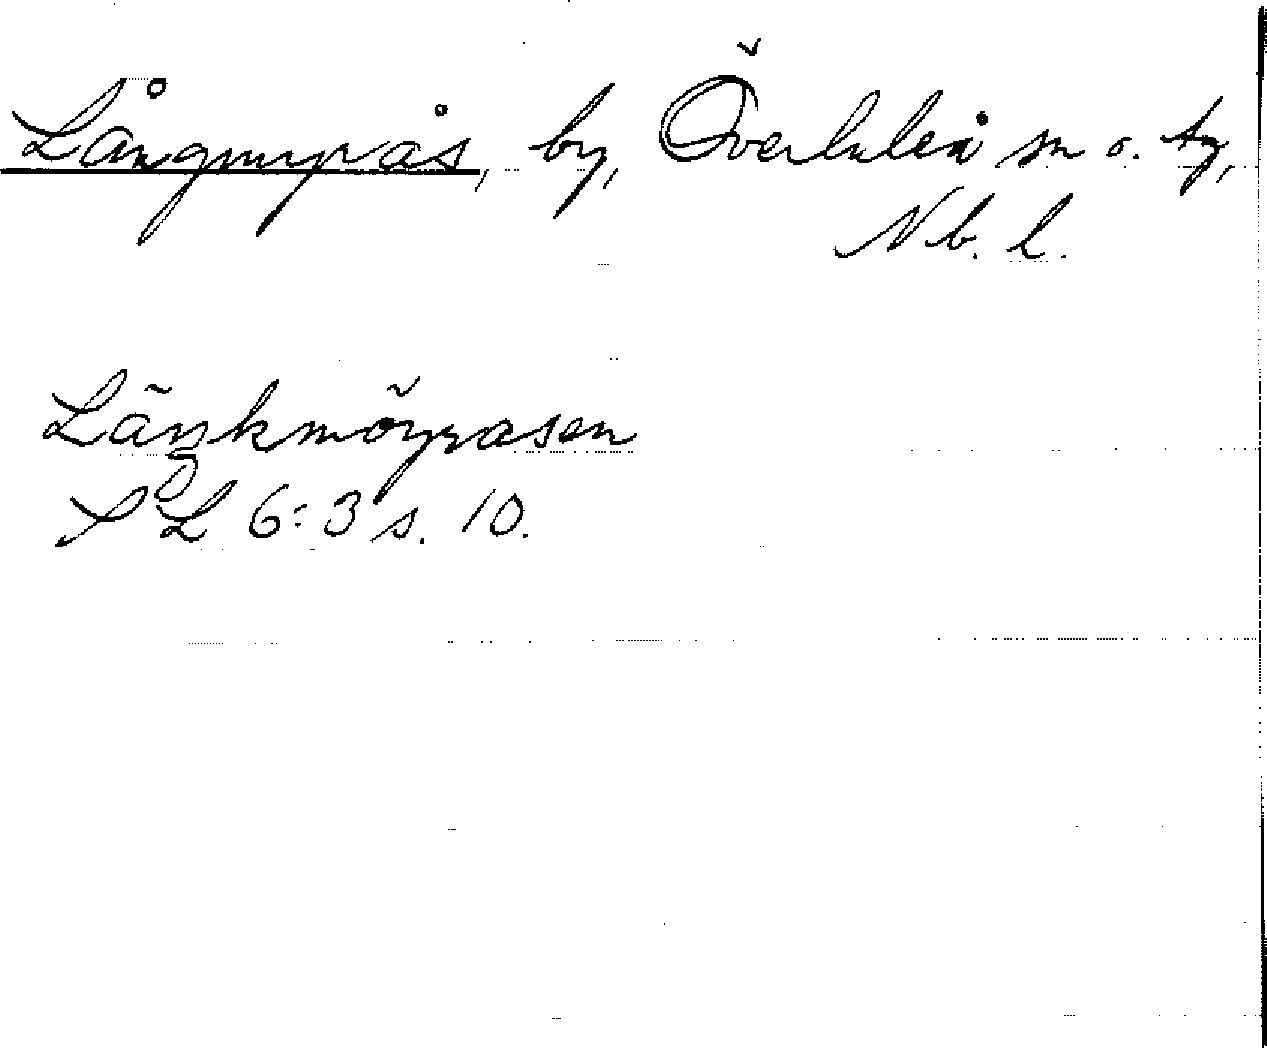 Långmyrås, by, Överluleå sn o. tg,
Nb. l.
Länkmöyråsen
SOL 6:3 s. 10.